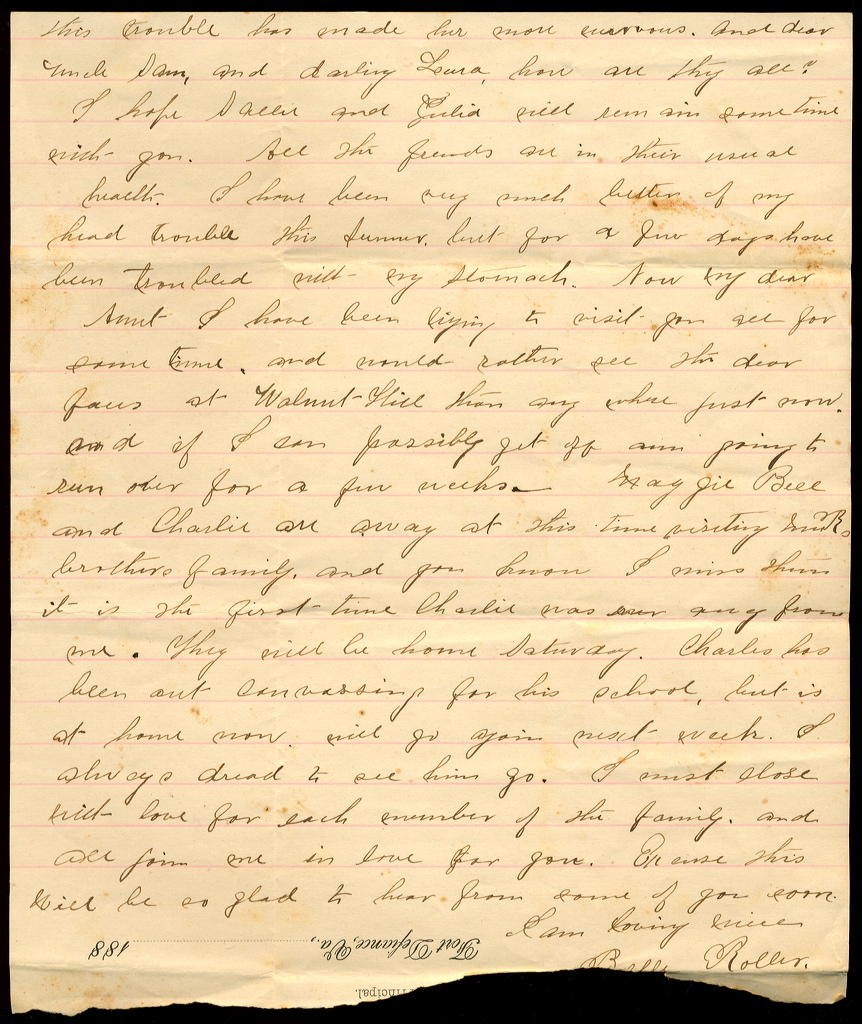 this trouble has made her more nervous. and dear
Uncle Sam, and darling Leura, how are they all?
I hope Sallie and Julia will remain sometime
with you. All the friends are in their usual
health. I have been very much better of my
head trouble this Summer, but for a few days have
been troubled with my stomach. Now my dear
Aunt I have been trying to visit you all for
some time, and would rather see the dear
faces at Walnut-Hill than any where just now.
and if I can possibly get off am going to
run over for a few weeks. Maggie Bell
and Charlie are away at this time visiting
brothers family, and you know I miss them
it is the first-time Charlie was ever away from
me. They will be home Saturday. Charles has
been out canvassing for his school, but is
at home now. will go again next week. I
always dread to see him go. I must close
with love for each member of the family. and
all join me in love for you. Excuse this
Will be so glad to hear from some of you soon.
I am loving niece
Belle Roller.
Fort Defiance, Va., 188
Principal.